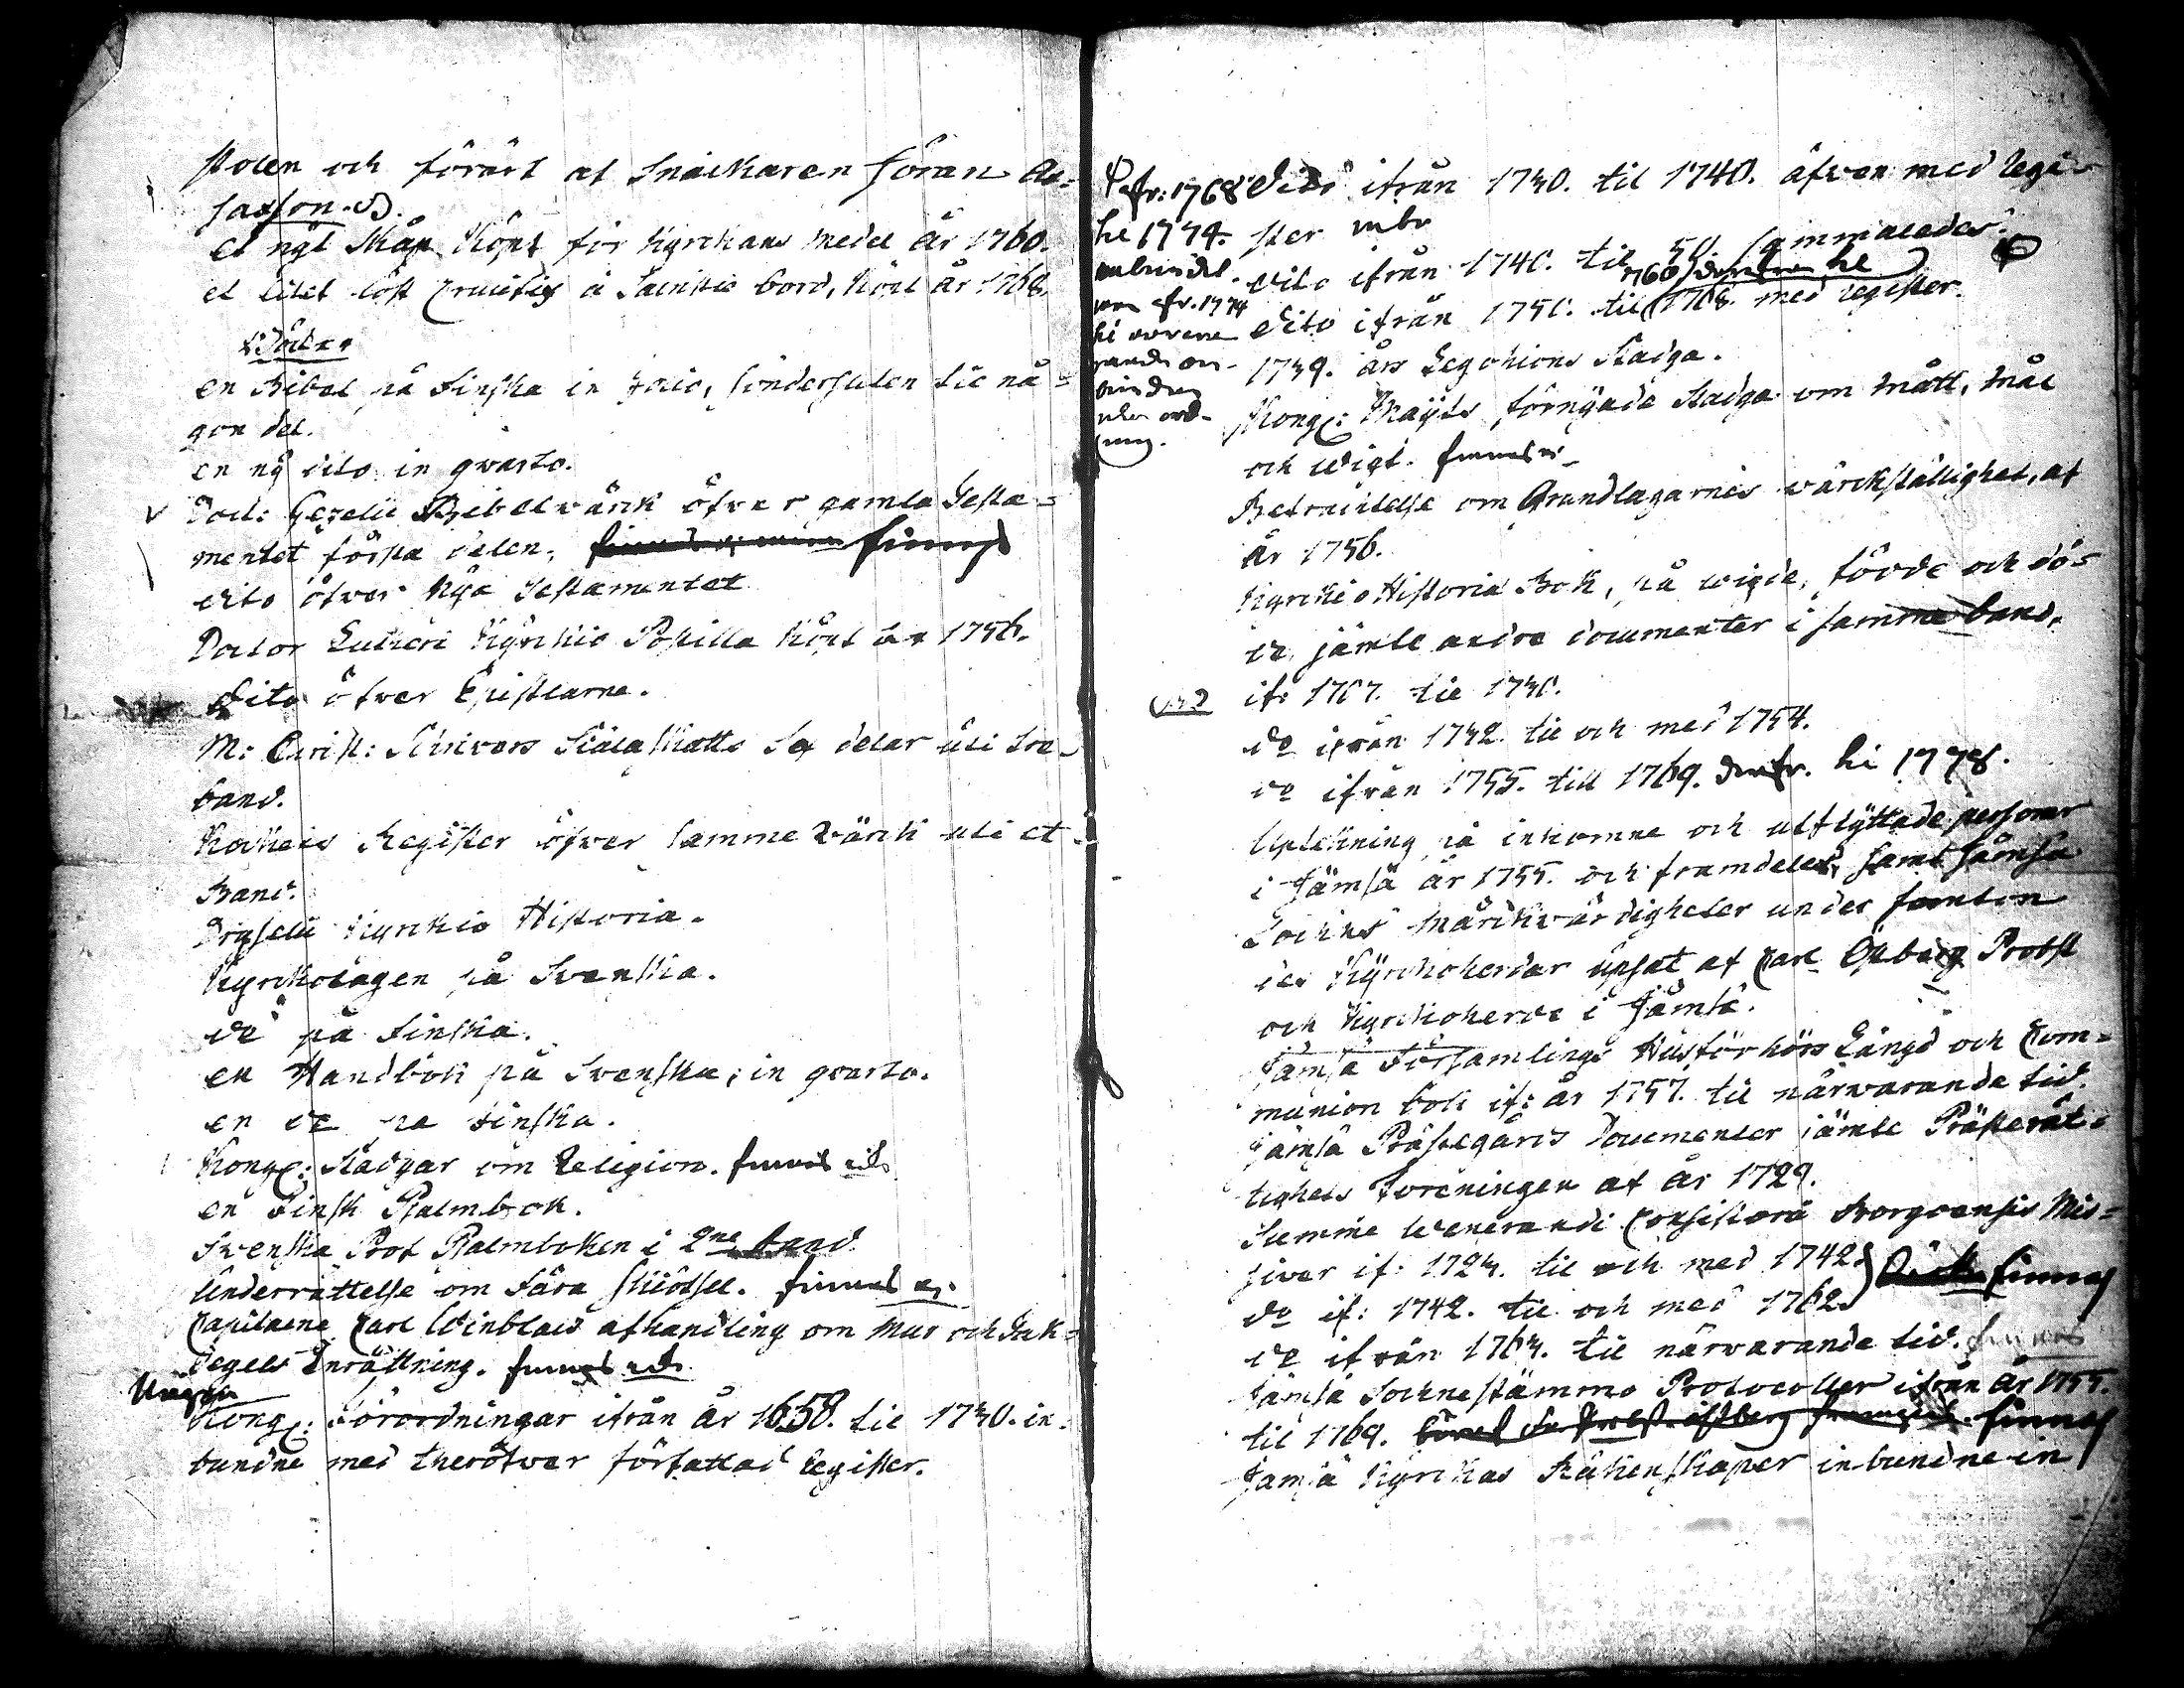 stolen och förärt af Snickaren Jöran
saxson.
et nýt Skåp Köpt för Kyrckans medel År 1760.
et litet löst Crucifix å Sacristie bord, Köpt År 1768.
Böcker
en Bibel på Finska in folio, sönderslitenn til nå-
gon del.
en nÿ dito in qvarto.
Doct: Gezelii Bibelvärck öfver gamla Testa-
mentet första delen, finnes
dito öfver Nÿa Testamentet
Doctor Lutheri Kÿrckio Postilla Köpt År 1756.
Dito öfver Epistlarne.
M: Christ: Schrivers Siäla Skatts Sex delar uti tre
band.
Register öfver samme Värck uti et
Band.
Kyrckio Historia.
Kyrckolagen på Svenska.
do på Finska.
en Handbok på Svenska, in qvarto.
en do på Finska.
Kongl: Stadgar om Religion. finnes ech
en Finsk Psalmbok.
Svenska Prof Psalmboken i 2ne band
Underrättelse om Fåra Skiötsel. finnes ej
Capitaene Carl Winblads afhandling om mur och Tak-
Tegels Inrättning. finnes ech
Kongl: Förordningar ifrån År 1658. til 1730. in-
bundne med theröfver författad Register.
fr: 1768
til 1774.
fr. 1774
Dito ifrån 1730. til 1740. äfven med Regi-
ster
dito ifrån 1740. til 50. sammaledes.
Dito ifrån 1750. til 1760 1768. med register.
1739. års Legohions Stadga.
Kongl: Maÿts förnÿade Stadga om mått, mål
och wigt. finnes ej
Betraktelse om Grundlagarnes värckställighet, af
År 1756.
Kyrckio Historiæ Bok, på wigde, födde och dö-
de, jämte andra documenter i samma band,
if: 1707. til 1730.
do ifrån 1732. til och med 1754.
do ifrån 1755. till 1769. til 1778.
Uptekning på inkomne och utflÿttade personer
i Jämsä År 1755. och framdeles, samt Jämsä
Sockns märckvärdigheter under
des Kÿrckoherdar upsat af Carl Probst
och Kyrckioherde i Jämsä.
Jämsä Församlings Husförhörs Längd och Com-
munion bok if: år 1757. til närvarande tid.
Jämsä Prästegårds Documenter jämte Prästerät-
tighets Föreningen af År 1729.
Summe Wenerandi Consistorii Borgoensis Mis-
siver if: 1723. til och med 1742.
do if: 1742. til och med 1762. finnas
do ifrån 1763. til närvarande tid. finnas
Jämsä Sochnestämmo Protocoller ifrån År 1755.
til 1769. finnas
Jämsä Kÿrckas Räkenskaper inbundne in